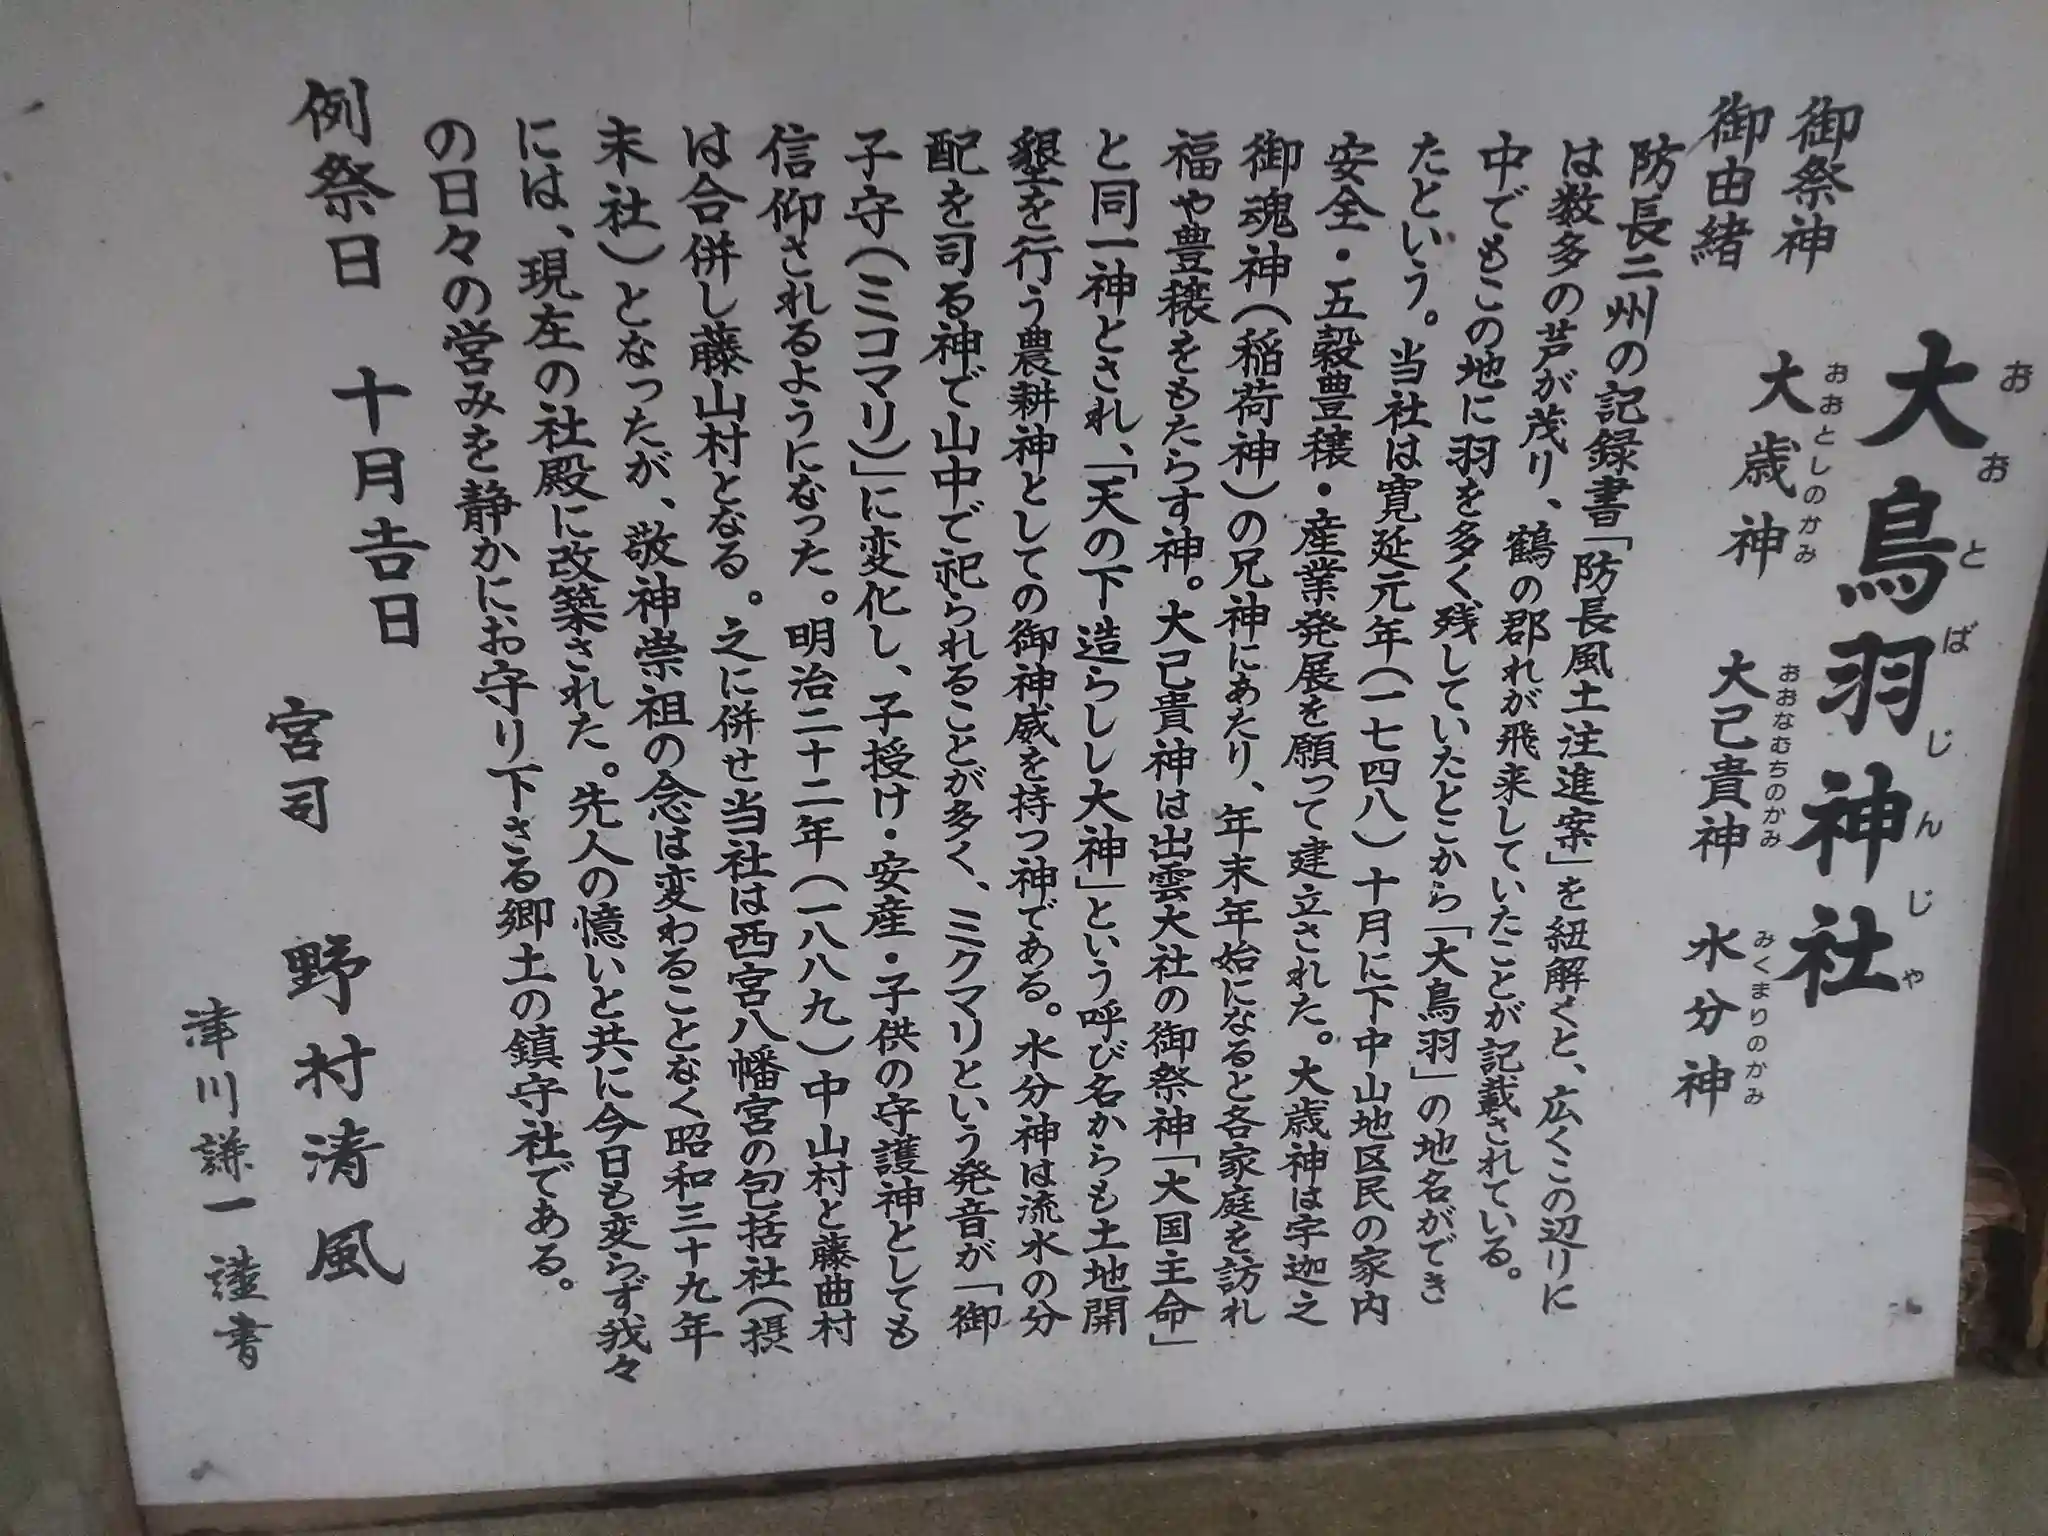 大鳥羽神社
おおとばじんじゃ
御祭神 大歳神 大己貴神 水分神
おおとしのかみ おおなむちのかみ みくまりのかみ
御由緒
防長二州の記録書「防長風土注進案」を紐解くと、広くこの辺りに
は数多の芦が茂り、鶴の郡れが飛来していたことが記載されている。
中でもこの地に羽を多く残していたとこから「大鳥羽」の地名ができ
たという。当社は寛延元年(一七四八)十月に下中山地区民の家内
安全・五穀豊穣・産業発展を願って建立された。大歳神は宇迦之
御魂神(稲荷神)の兄神にあたり、年末年始になると各家庭を訪れ
福や豊穣をもたらす神。大己貴神は出雲大社の御祭神「大国主命」
と同一神とされ、「天の下造らしし大神」という呼び名からも土地開
墾を行う農耕神としての御神威を持つ神である。水分神は流水の分
配を司る神で山中で祀られることが多く、ミクマリという発音が「御
子守(ミコマリ)」に変化し、子授け・安産・子供の守護神としても
信仰されるようになった。明治二十二年(一八八九)中山村と藤曲村
は合併し藤山村となる。之に併せ当社は西宮八幡宮の包括社(摂
末社)となったが、敬神崇祖の念は変わることなく昭和三十九年
には、現左の社殿に改築された。先人の憶いと共に今日も変らず我々
の日々の営みを静かにお守り下さる郷土の鎮守社である。
例祭日 十月吉日
宮司 野村清風
津川謙一謹書